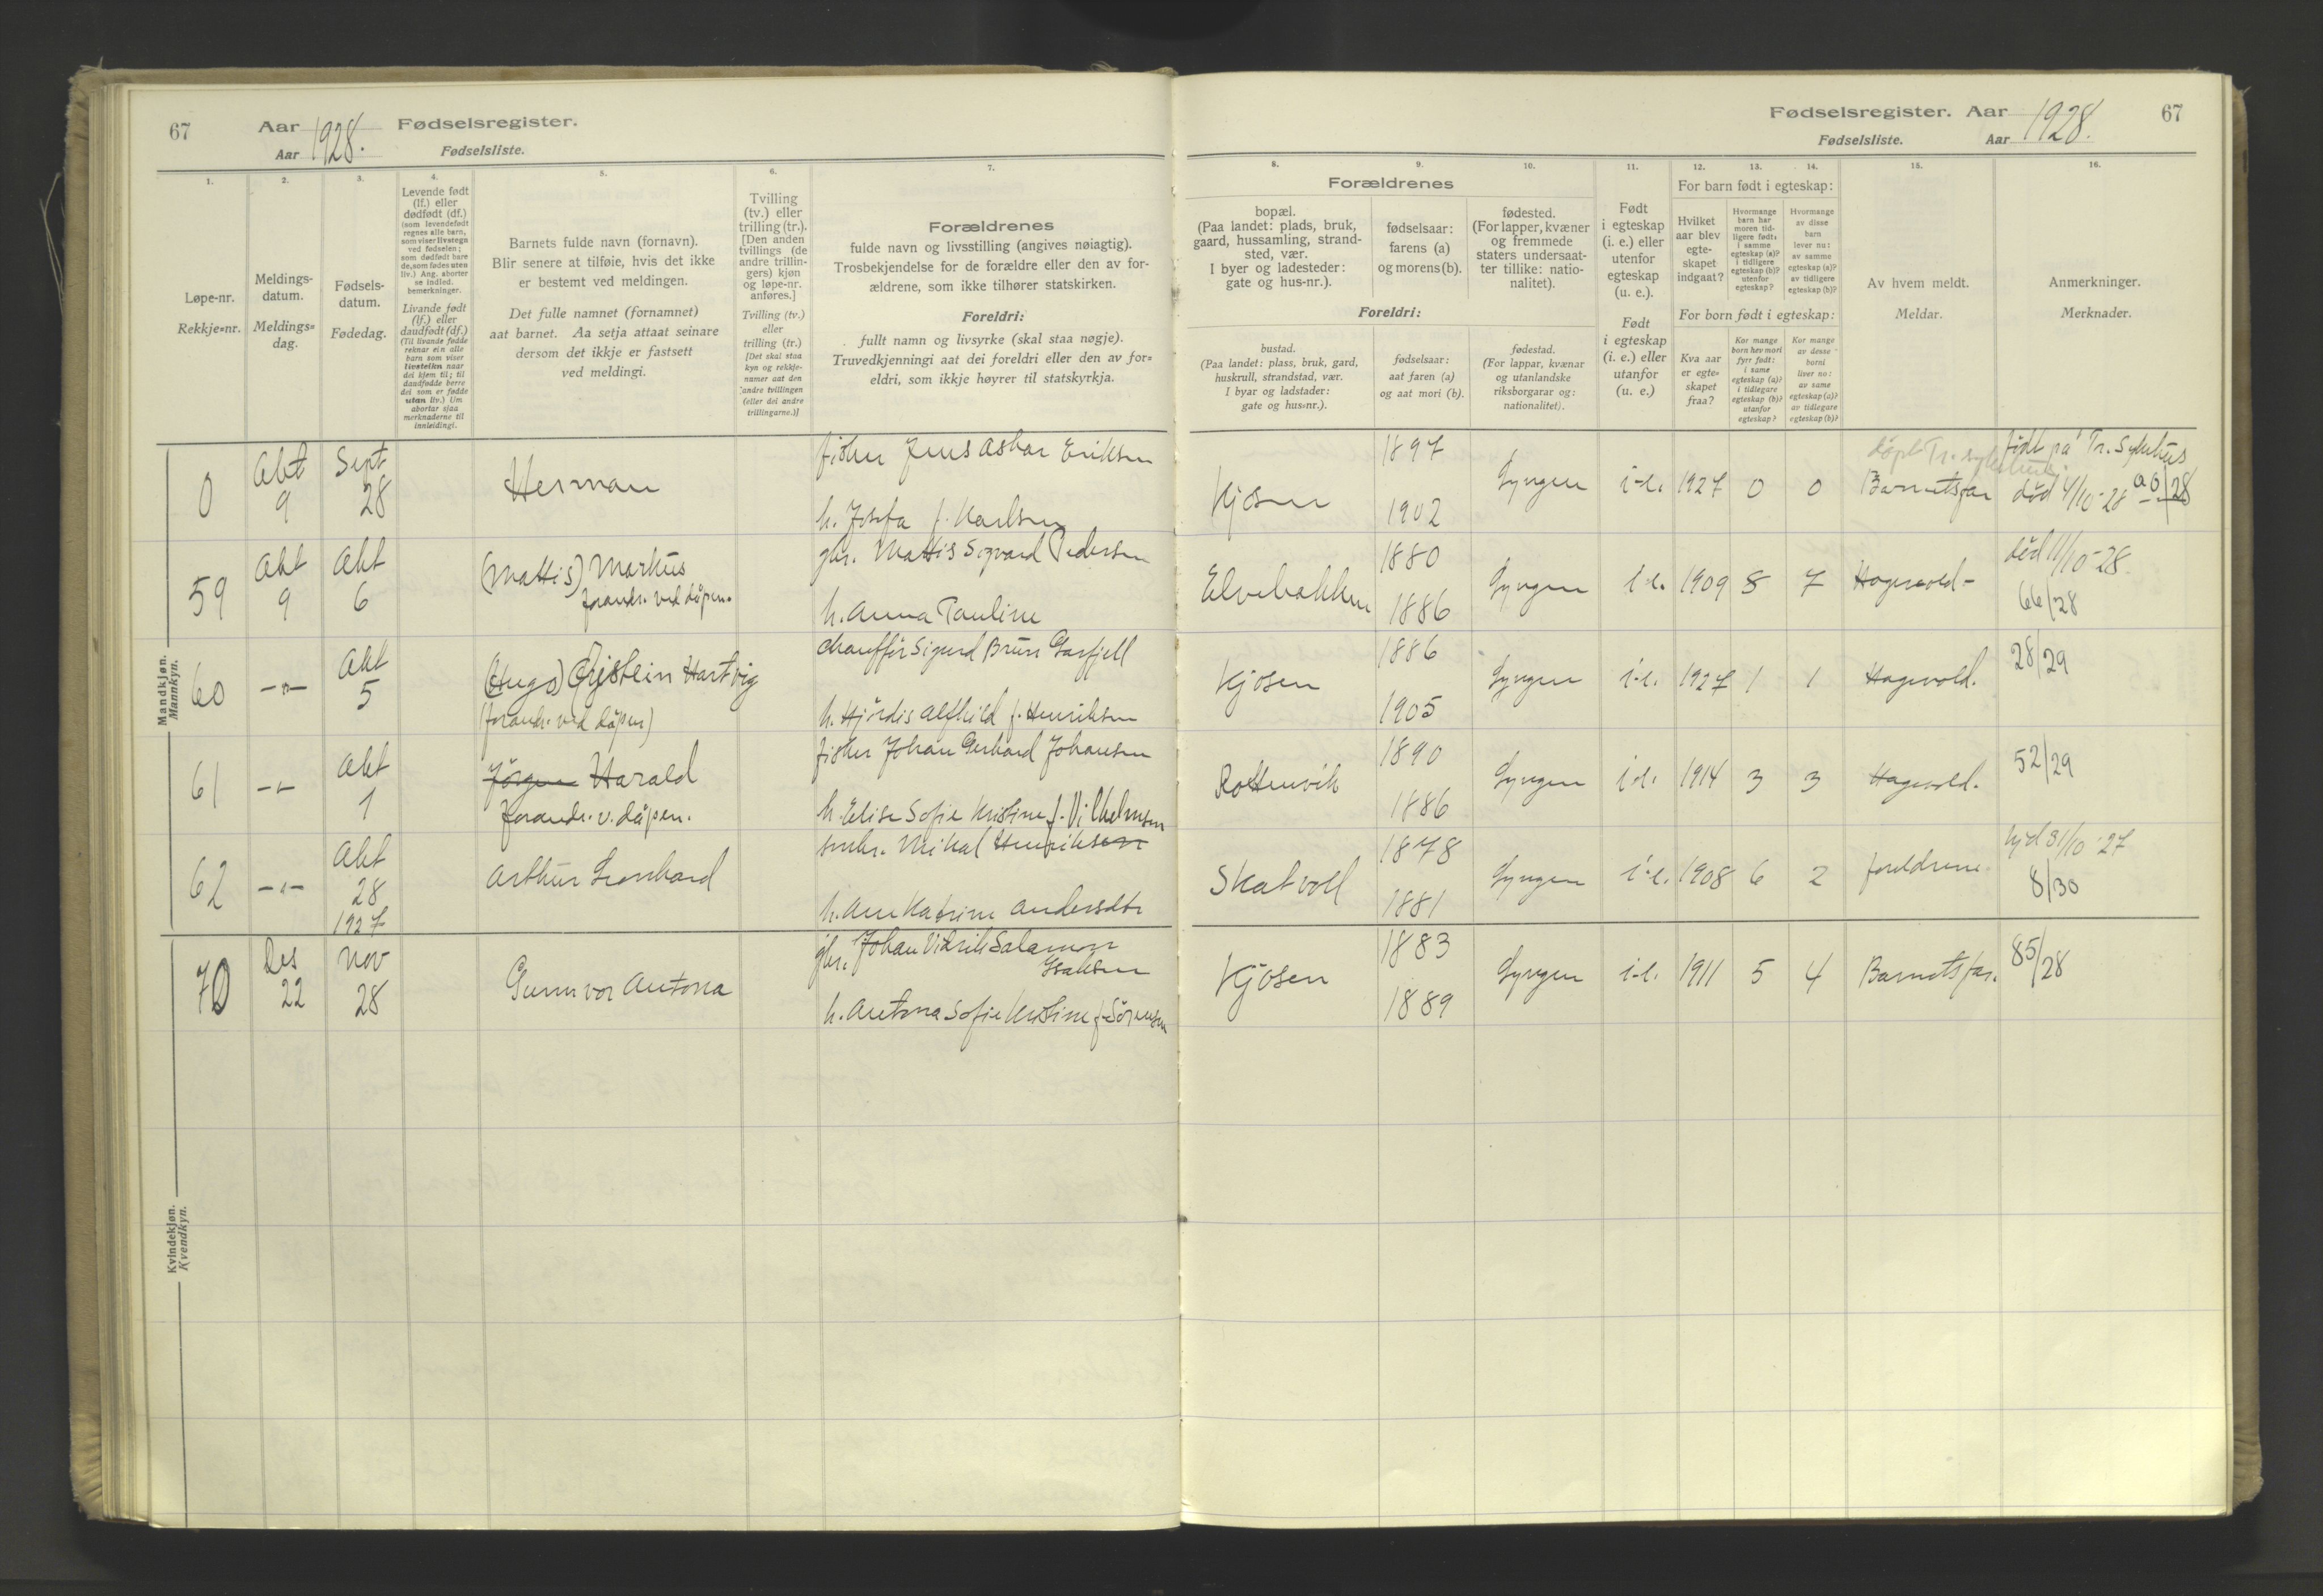 67 Aar 1928. Fødselsregister.
Aar Fødselsliste.
1. 2. 3. 4. 5. 6. 7.
Løpe-nr.
Rekkje=nr.
Meldings-
datum.
Meldings=
dag.
Fødsels-
datum.
Fødedag.
Levende født
(lf.) eller
dødfødt (df.)
(som levendefødt
regnes alle barn,
som viser livstegn
ved fødselen;
som dødfødt bare
de, som fødes uten
liv.) Ang. aborter
se indled.
bemerkninger.
Livande født
(lf.) eller
daudfødt (df.)
(Til livande fødde
reknar ein alle
barn som viser
livsteikn naar
dei kjem til; til
daudfødde berre
dei som er fødde
utan liv.) Um
abortar sjaa
merknaderne til
innleidingi.
Barnets fulde navn (fornavn).
Blir senere at tilføie, hvis det ikke
er bestemt ved meldingen.
Det fulle namnet (fornamnet)
aat barnet. Aa setja attaat seinare
dersom det ikkje er fastsett
ved meldingi.
Tvilling
(tv.) eller
trilling (tr.).
[Den anden
tvillings (de
andre trillin-
gers) kjøn
og løpe-nr.
anføres.]
Tvilling (tv.)
eller
trilling (tr.)
[Det skal staa
kyn og rekkje-
numer aat den
andre tvillingen
(eller dei andre
trillingarne.)]
Forældrenes
fulde navn og livsstilling (angives nøiagtig).
Trosbekjendelse for de forældre eller den av for-
ældrene, som ikke tilhører statskirken.
Foreldri:
fullt namn og livsyrke (skal staa nøgje).
Truvedkjenningi aat dei foreldri eller den av for=
eldri, som ikkje høyrer til statskyrkja.
Mandkjøn.
Mannkyn.
0 Okt 9 Sept 28 Herman fisker Jens Oskar Eriksen
h. Josefa f. Karlsen
59 Okt 9 Okt 6 (Mattis) Markus
forandr. ved dåpen.
gbr. Mattis Sigvard Pedersen
h. Anna Pauline
60 -"- Okt 5 (Hugo) Øistein Hartvig
(forandr. ved dåpen)
chauffør Sigurd Brun
h. Hjördis Alfhild f. Henriksen
61 -"- Okt 1 Jørgen Harald
forandr. v. dåpen.
fisker Johan Gerhard Johansen
h. Elise Sofie Kristine f. Vilhelmsen
62 -"- Okt 28 1927 Arthur Leonhard
Mikal Henriksen
h. Ane Katrine Andersdtr
Kvindekjøn.
Kvendkyn.
70 Des 22 Nov 28 Gunnvor Antona
gbr. Johan Salamon
Isaksen
h. Antona Sofie Kristine f. Sörensen
Fødselsregister. Aar 1928. 67
Fødselsliste. Aar
8. 9. 10. 11. 12. 13. 14. 15. 16.
Forældrenes
bopæl.
(Paa landet: plads, bruk,
gaard, hussamling, strand-
sted, vær.
I byer og ladesteder:
gate og hus-nr.).
fødselsaar:
farens (a)
og morens (b).
fødested.
(For lapper, kvæner
og fremmede
staters undersaat-
ter tillike: natio-
nalitet).
Foreldri:
bustad.
(Paa landet: plass, bruk, gard,
huskrull, strandstad, vær.
I byar og ladstader:
gate og hus=nr.).
fødselsaar:
aat faren (a)
og aat mori (b).
fødestad.
(For lappar, kvænar
og utanlandske
riksborgarar og:
nationalitet).
Født
i egteskap
(i. e.) eller
utenfor
egteskap
(u. e.).
Født
i egteskap
(i. e.) eller
utanfor
(u. e.)
For barn født i egteskap:
Hvilket
aar blev
egte-
skapet
indgaat?
Hvormange
barn har
moren tid-
ligere født:
i samme
egteskap (a)?
i tidligere
egteskap (b)?
utenfor
egteskap?
Hvormange
av disse
barn
lever nu:
av samme
egteskap (a)?
av tidligere
egteskap (b)?
For born født i egteskap:
Kva aar
er egte=
skapet
fraa?
Kor mange
born hev mori
fyrr født:
i same
egteskap (a)?
i tidlegare
egteskap (b)?
utanfor
egteskap?
Kor mange
av desse
borni
liver no:
av same
egteskap (a)?
av tidlegare
egteskap (b)?
Av hvem meldt.
Meldar.
Anmerkninger.
Merknader.
Kjosen 1897 1902 Lyngen i.e. 1927 0 0 døpt Tr. sykehus. Barnetsfar født på Tr. Sykehus
død 4/10-28
Elvebakken 1880 1886 Lyngen i.e. 1909 8 7 Hagevold- død 11/10-28.
66/28
Kjosen 1886 1905 Lyngen i.e. 1927 1 1 Hagevold. 28/29
Rottenvik 1890 1886 Lyngen i.e. 1914 3 3 Hagevold. 52/29
Skatvoll 1878 1881 Lyngen i.e. 1908 6 2 foreldrene 31/10-27
8/30
Kjosen 1883 1889 Lyngen i.e. 1911 5 4 Barnetsfar. 85/28